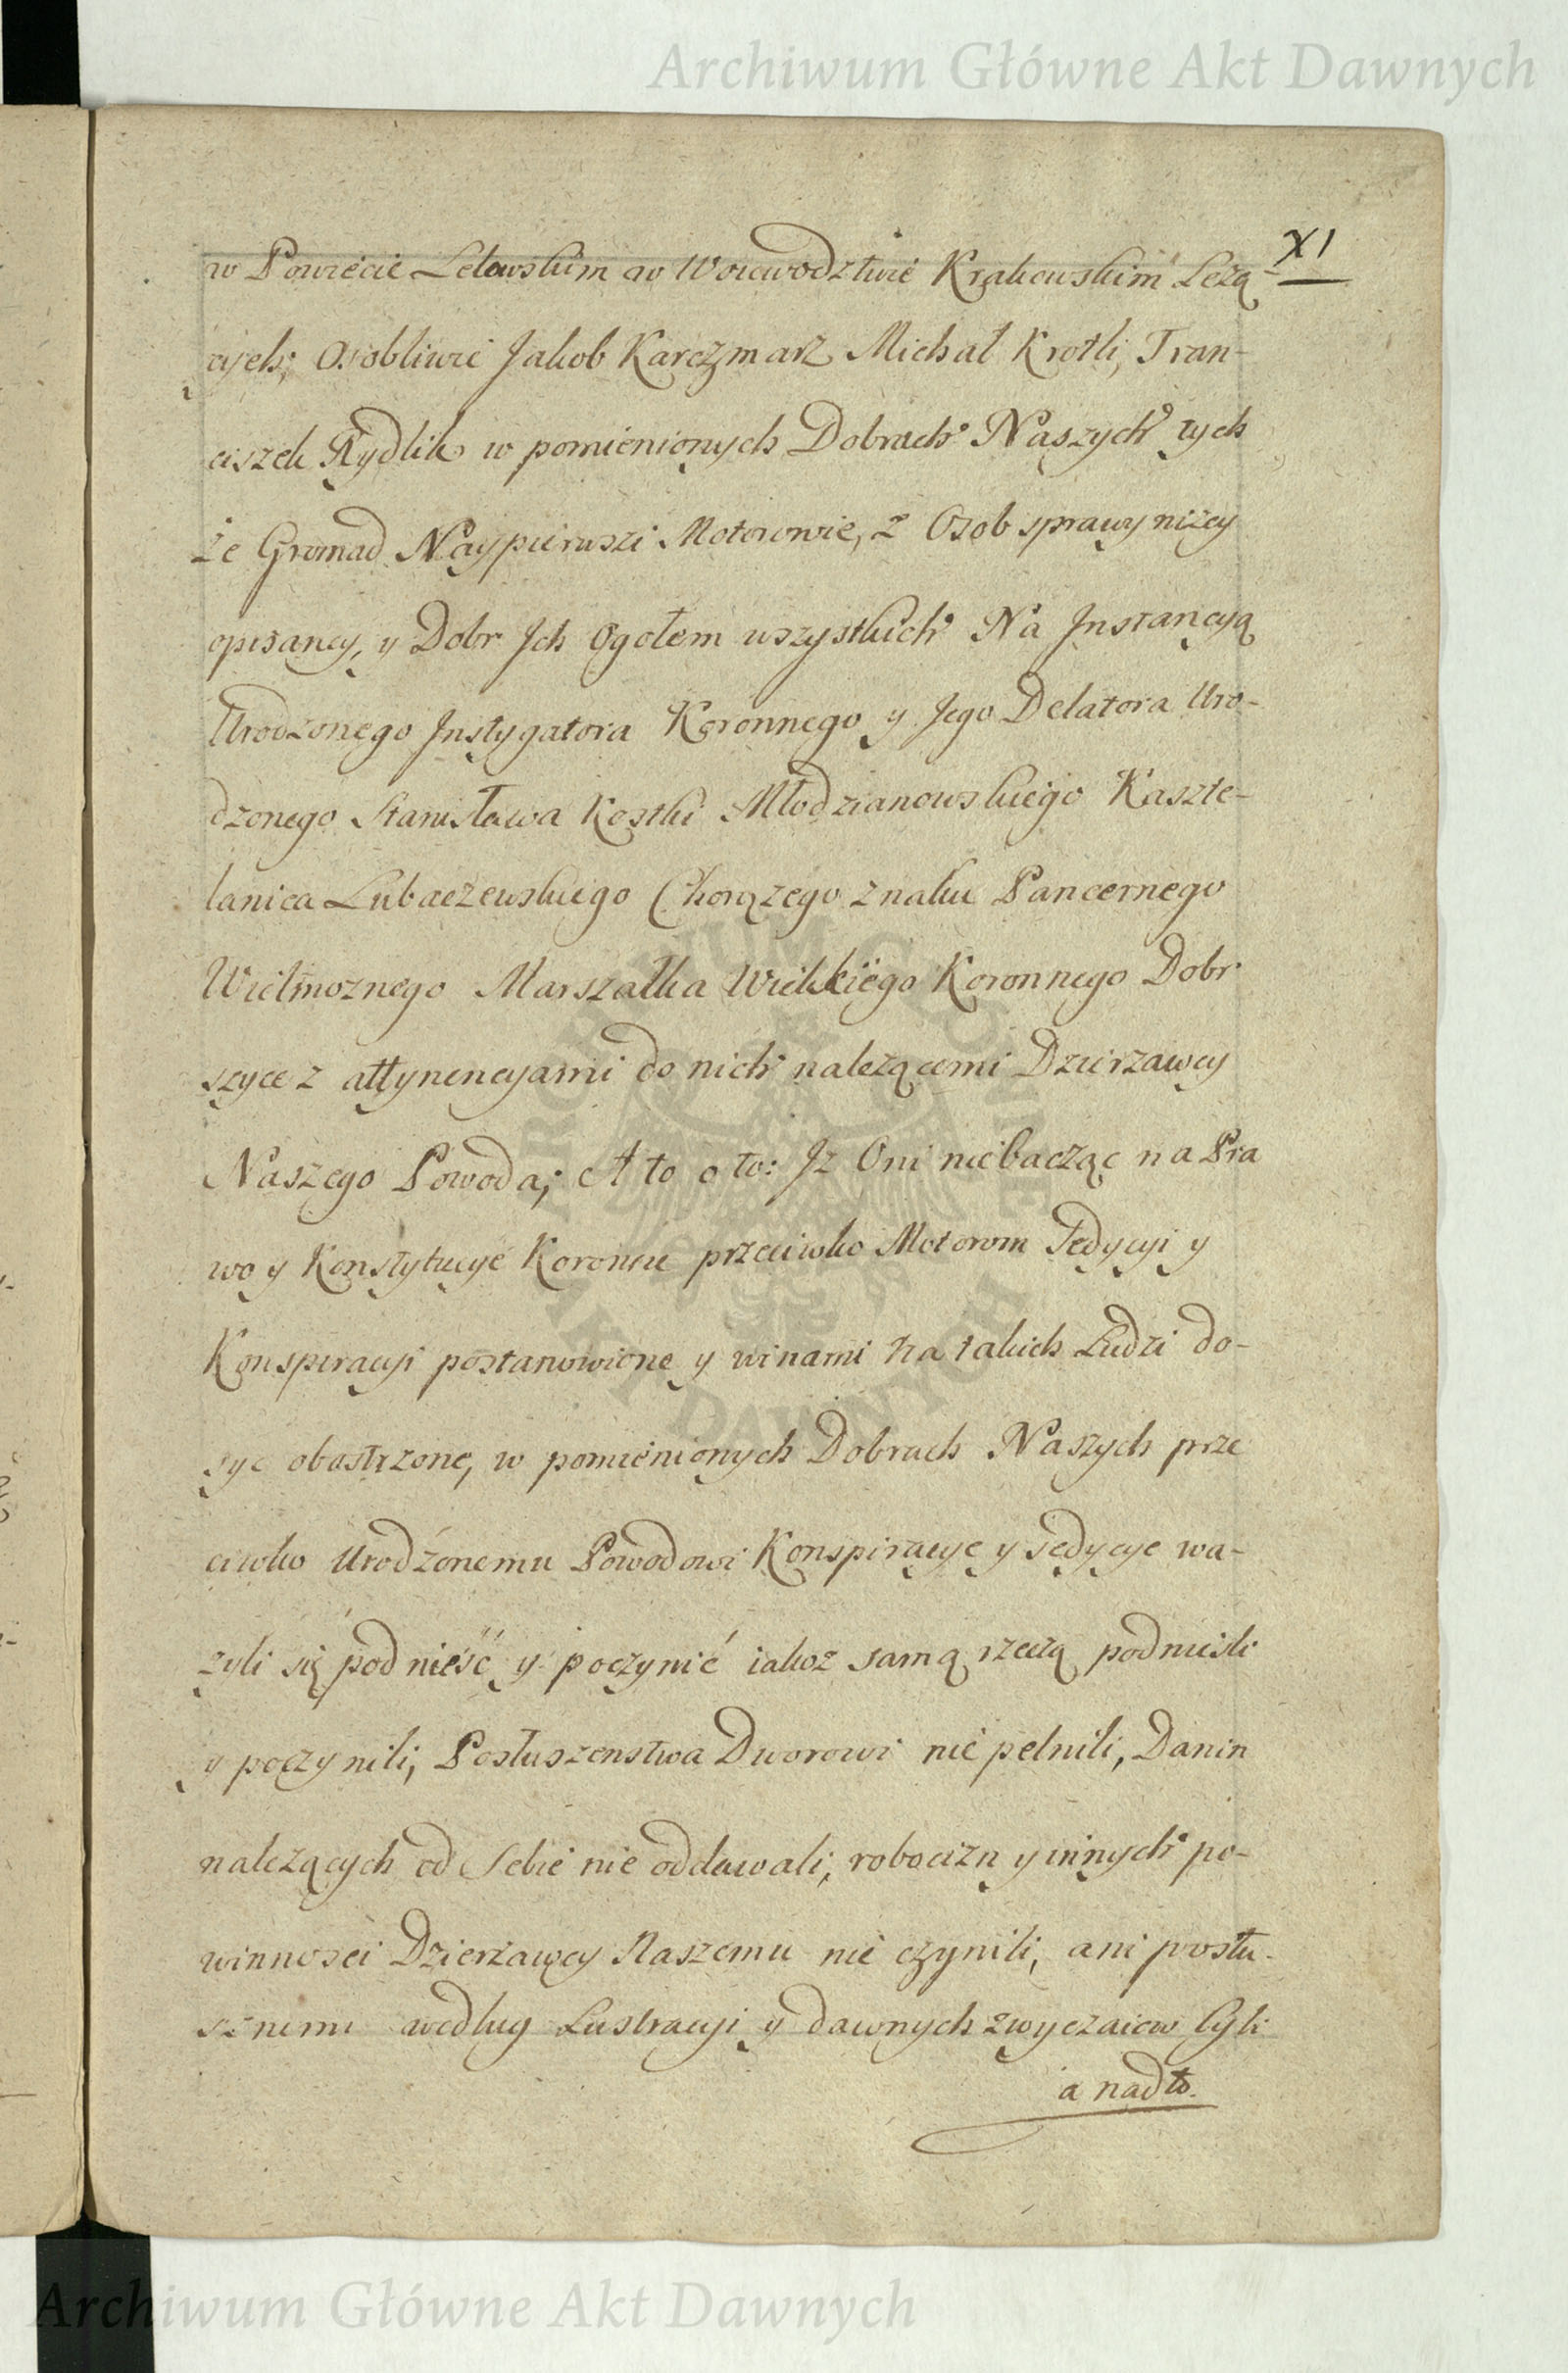 Archiwum Główne Akt Dawnych
XI
w Powiecie Lelowskim w Woiewodztwie Krakowskim Leżą
cych; Osobliwie Jakob Karczmarz Michał Krotki, Fran-
ciszek Rydlik w pomienionych Dobrach Naszych tych
że Gromad Naypierwsi Motorowie, z Osob sprawy niżey
opisaney, y Dobr Jch Ogołem wszystkich Na Jnstancyą
Urodzonego Jnstygatora Koronnego y Jego Delatora Uro-
dzonego Stanisława Kostki Młodzianowskiego Kaszte-
lanica Lubaczewskiego Chorązego znaku Pancernego
Wielmoznego Marszałka Wielkiego Koronnego Dobr
szyce z attynencyami do nich należącemi Dzierzawcy
Naszego Powoda; A to o to: Jz Oni niebacząc na Pra
wo y Konstytucye Koronne przeciwko Motorom Sedycyi y
Konspiracyi postanowione y winami na takich Ludzi do-
syc obostrzone, w pomienionych Dobrach Naszych prze
ciwko Urodzonemu Powodowi Konspiracye y sedycye wa-
zyli się podnieść y poczynić iakoz samą rzeczą podnieśli
y poczynili, Posłuszenstwa Dworowi nie pełnili, Danin
należących od Siebie nie oddawali, robocizn y innych po-
winnosci Dzierżawcy Naszemu nie czynili, ani posłu-
sznemi według Lustracyi y dawnych zwyczaiow byli
a nadto.
ARCHIWUM GŁÓWNE
AKT DAWNYCH
Archiwum Główne Akt Dawnych